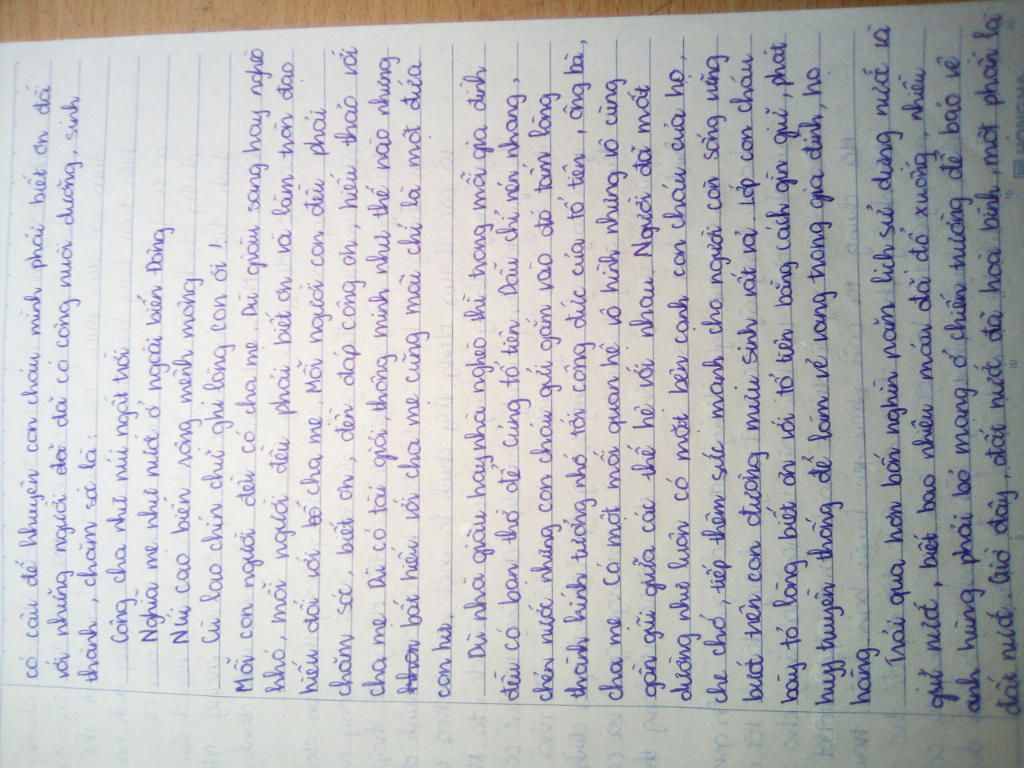 có câu để khuyên con cháu mình phải biết ơn đối
với những người đã đã có công nuôi dưỡng, sinh
thành, chăm só là:
Công cha như núi ngất trời
Nghĩa mẹ như nước ở ngoài biển Đông
Núi cao biển rông mênh mông
Cù lao chín chữ ghi lòng con ơi!
Mỗi con người đều có cha mẹ. Dù giàu sang hay nghèo
khó, mỗi người đều phải biết ơn và làm tròn đạo
hiếu đối với bố cha mẹ. Mỗi người con đều phải
chăm sóc, biết ơn, đền đáp công ơn, hiếu thảo với
cha mẹ. Dù có tài giỏi, thông minh như thế nào nhưng
bất hiếu với cha mẹ cũng mãi chỉ là một đứa
con hư.
Dù nhà giàu hay nhà nghèo thì trong mỗi gia đình
đều có bàn thờ để cúng tổ tiên. Dẫu chỉ nén nhang,
chén nước nhưng con cháu gửi gắm vào đó tấm lòng
thành kính tưởng nhớ tới công đức của tổ tiên, ông bà,
cha mẹ. Có một mối quan hệ vô hình nhưng vô cùng
gần gũi giữa các thế hệ với nhau. Người đã mất
dường như luôn có mặt bên cạnh con cháu của họ,
che chở, tiếp thêm sức mạnh cho người con sống vững
bước trên con đường mưu sinh vất vả. Lớp con cháu
bày tỏ lòng biết ơn với tổ tiên bằng cách gìn giữ, phát
huy truyền thống để làm vẻ vang trong gia đình, họ
hàng.
Trải qua hơn bốn nghìn năm lịch sử dựng nước và
giữ nước, biết bao nhiêu máu đã đổ xuống, nhiều
anh hùng phải bỏ mạng ở chiến trường để bảo vệ
đất nước. Giờ đây, đất nước đã hoà bình, một phần là